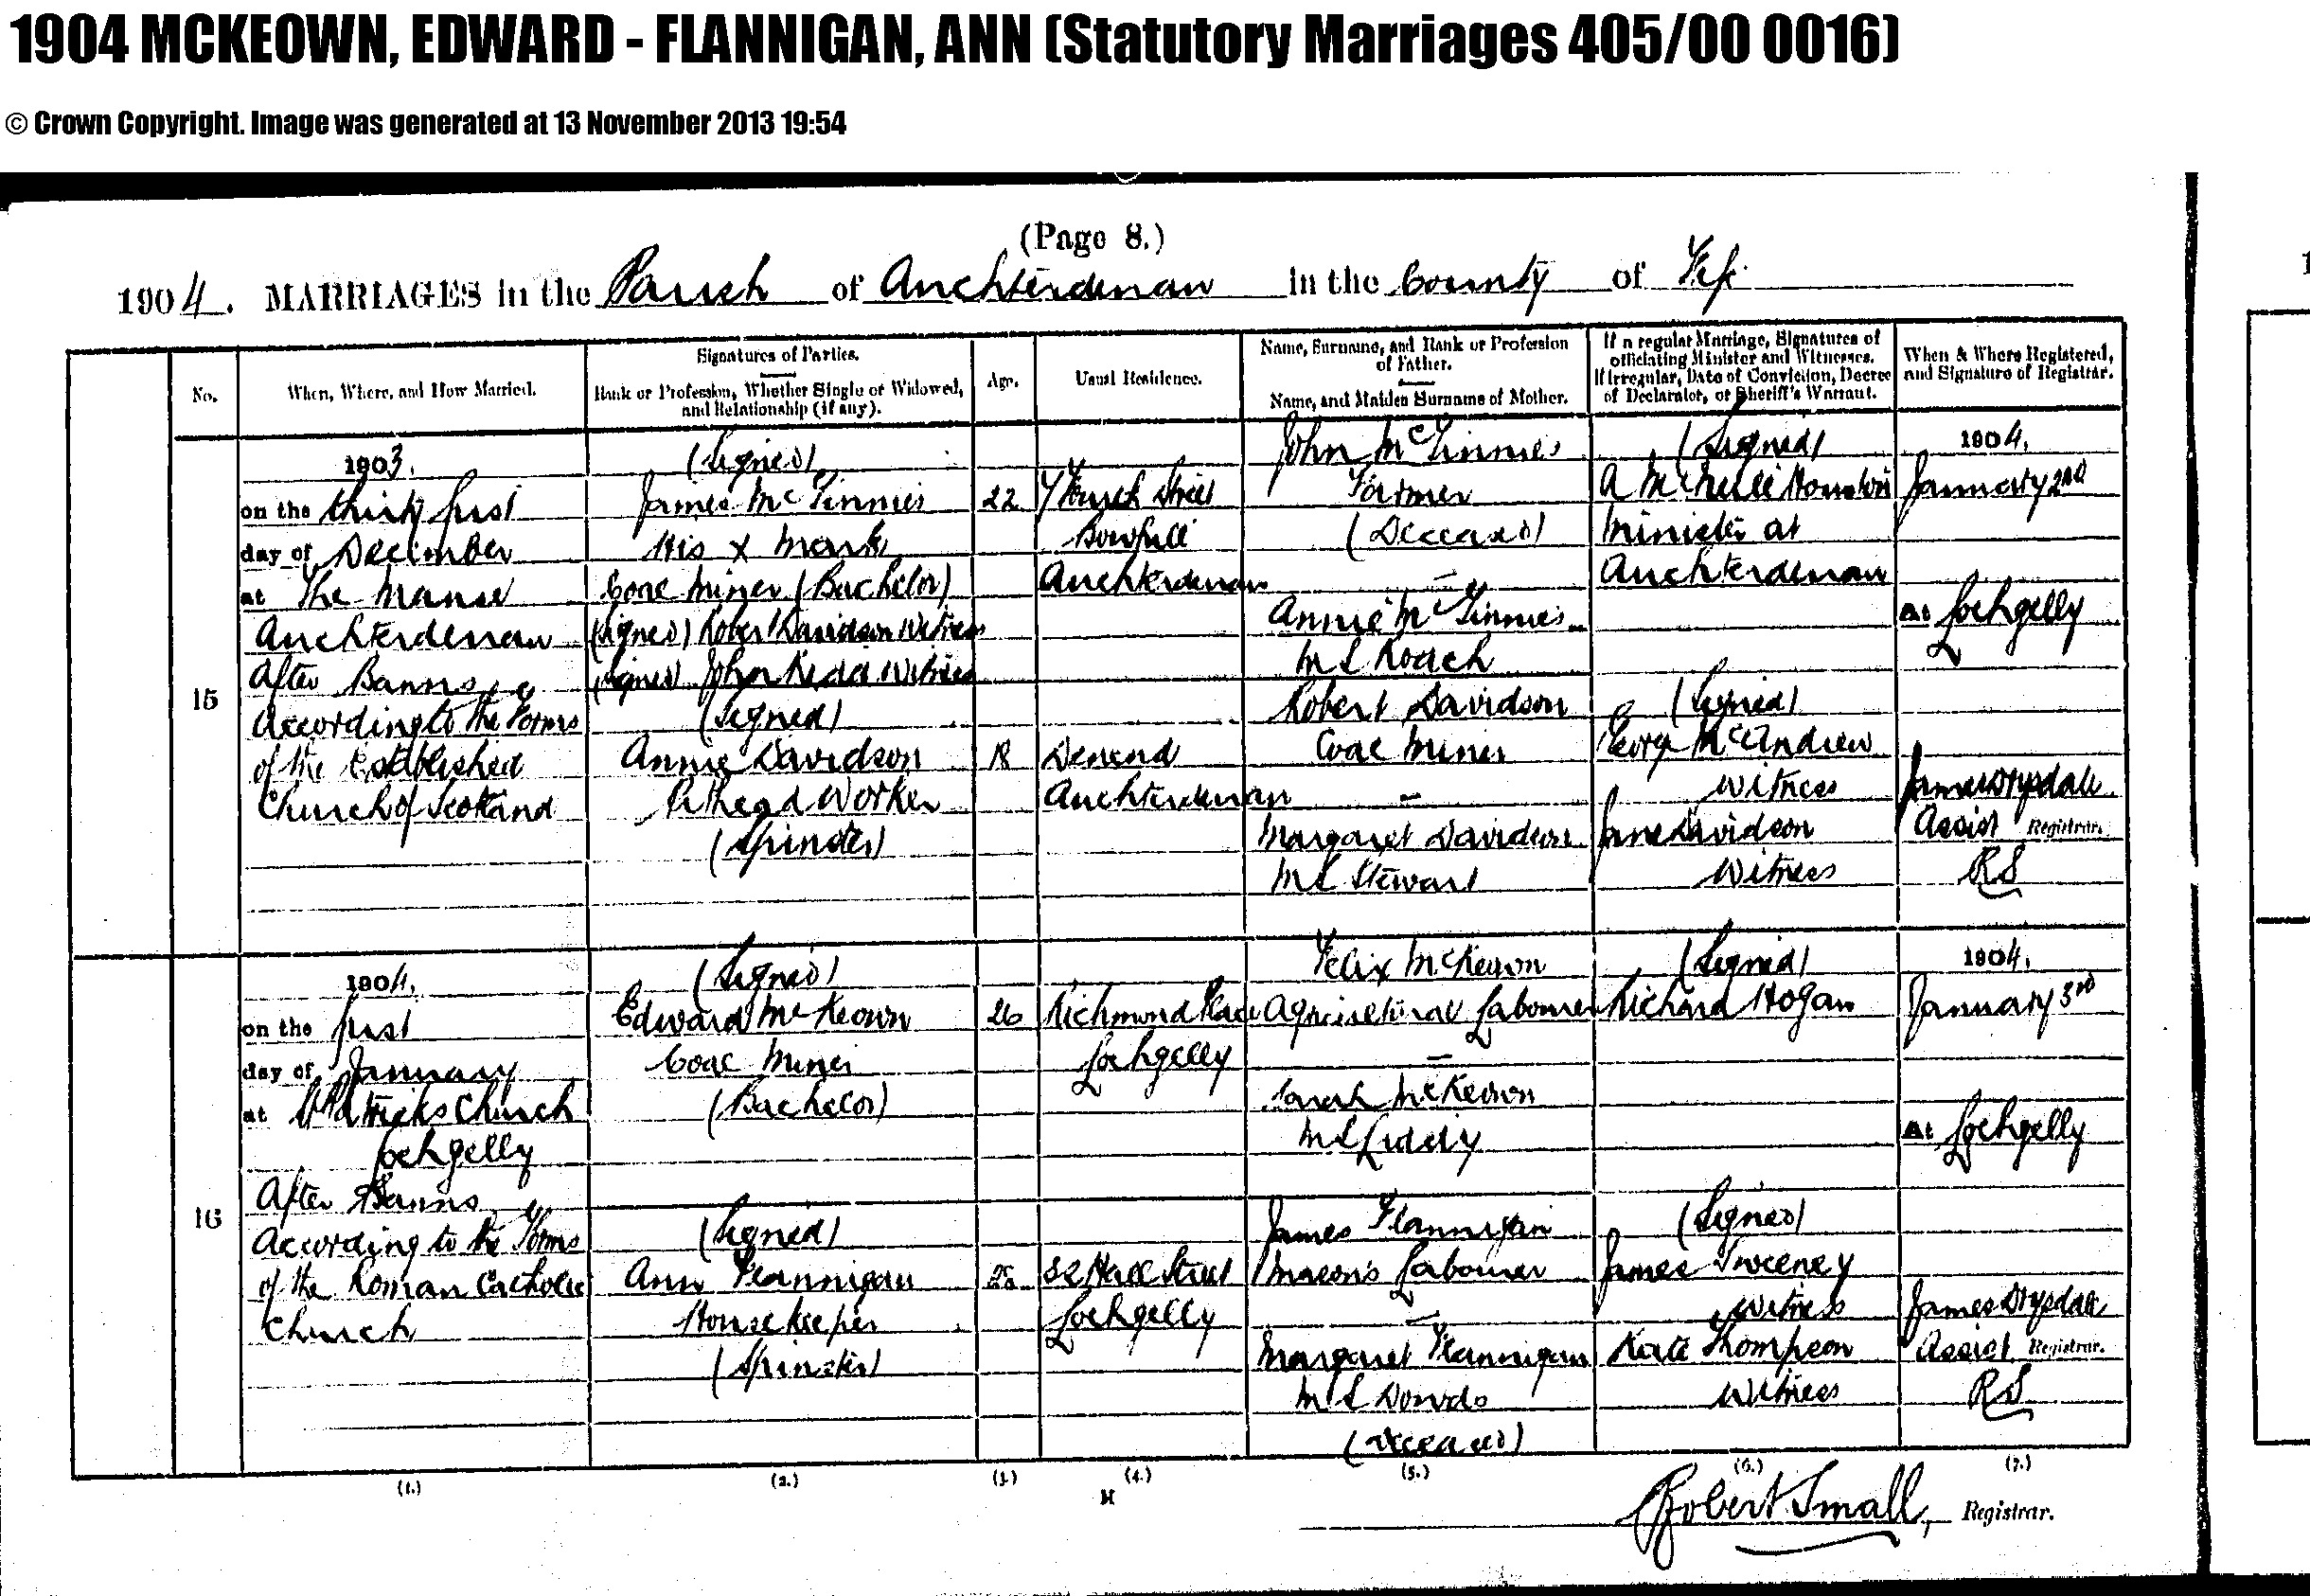 1904 MCKEOWN, EDWARD - FLANNIGAN, ANN (Statutory Marriages 405/00 0016)
© Crown Copyright. Image was generated at 13 November 2013 19:54
(Page 8.)
1904. MARRIAGES in the Parish of Auchterderran in the County of Fife
No.
When, Where, and How Married.
Signatures of Parties.
Rank or Profession, Whether Single or Widowed,
and Relationship (if any).
Age.
Usual Residence.
Name, Surname, and Rank or Profession
of Father.
Name, and Maiden Surname of Mother.
If a regular Marriage, Signatures of
officiating Minister and Witnesses.
If Irregular, Date of Conviction, Decree
of Declarator, or Sheriff's Warrant.
When & Where Registered,
and Signature of Registrar.
15
1903.
on the thirty first
day of December
at The Manse
Auchterderran
After Banns
According to the Forms
of the Established
Church of Scotland
(Signed)
James McGinnies
His x Mark
Coal Miner (Bachelor)
(Signed) Robert Davidson Witness
(Signed) John Kidd Witness
(Signed)
Annie Davidson
Pithead Worker
(Spinster)
22
18
Street
Bowhill
Auchterderran
Denend
Auchterderran
John McGinnies
Farmer
(Deceased)
Annie McGinnies
M.S. Roach
Robert Davidson
Coal Miner
Margaret Davidson
M.S. Stewart
(Signed)
A
Minister at
Auchterderran
(Signed)
George McAndrew
Witness
Jane Davidson
Witness
1904.
January 2nd
At Lochgelly
James Drysdale
Assist Registrar.
RS
16
1904.
on the first
day of January
at St Patricks Church
Lochgelly
After Banns
According to the Forms
of the Roman Catholic
Church
(Signed)
Edward McKeown
Coal Miner
(Bachelor)
(Signed)
Ann Flannigan
Housekeeper
(Spinster)
26
Richmond Place
Lochgelly
32 Hall Street
Lochgelly
Felix McKeown
Agricultural Labourer
Sarah McKeown
M.S. Liddy
James Flannigan
Mason's Labourer
Margaret Flannigan
M.S. Dowds
(Deceased)
(Signed)
Richard Hogan
(Signed)
James Sweeney
Witness
Kate Thompson
Witness
1904.
January 3rd
At Lochgelly
James Drysdale
Assist Registrar.
RS
(1.) (2.) (3.) (4.) (5.) (6.) (7.)
Robert Small, Registrar.